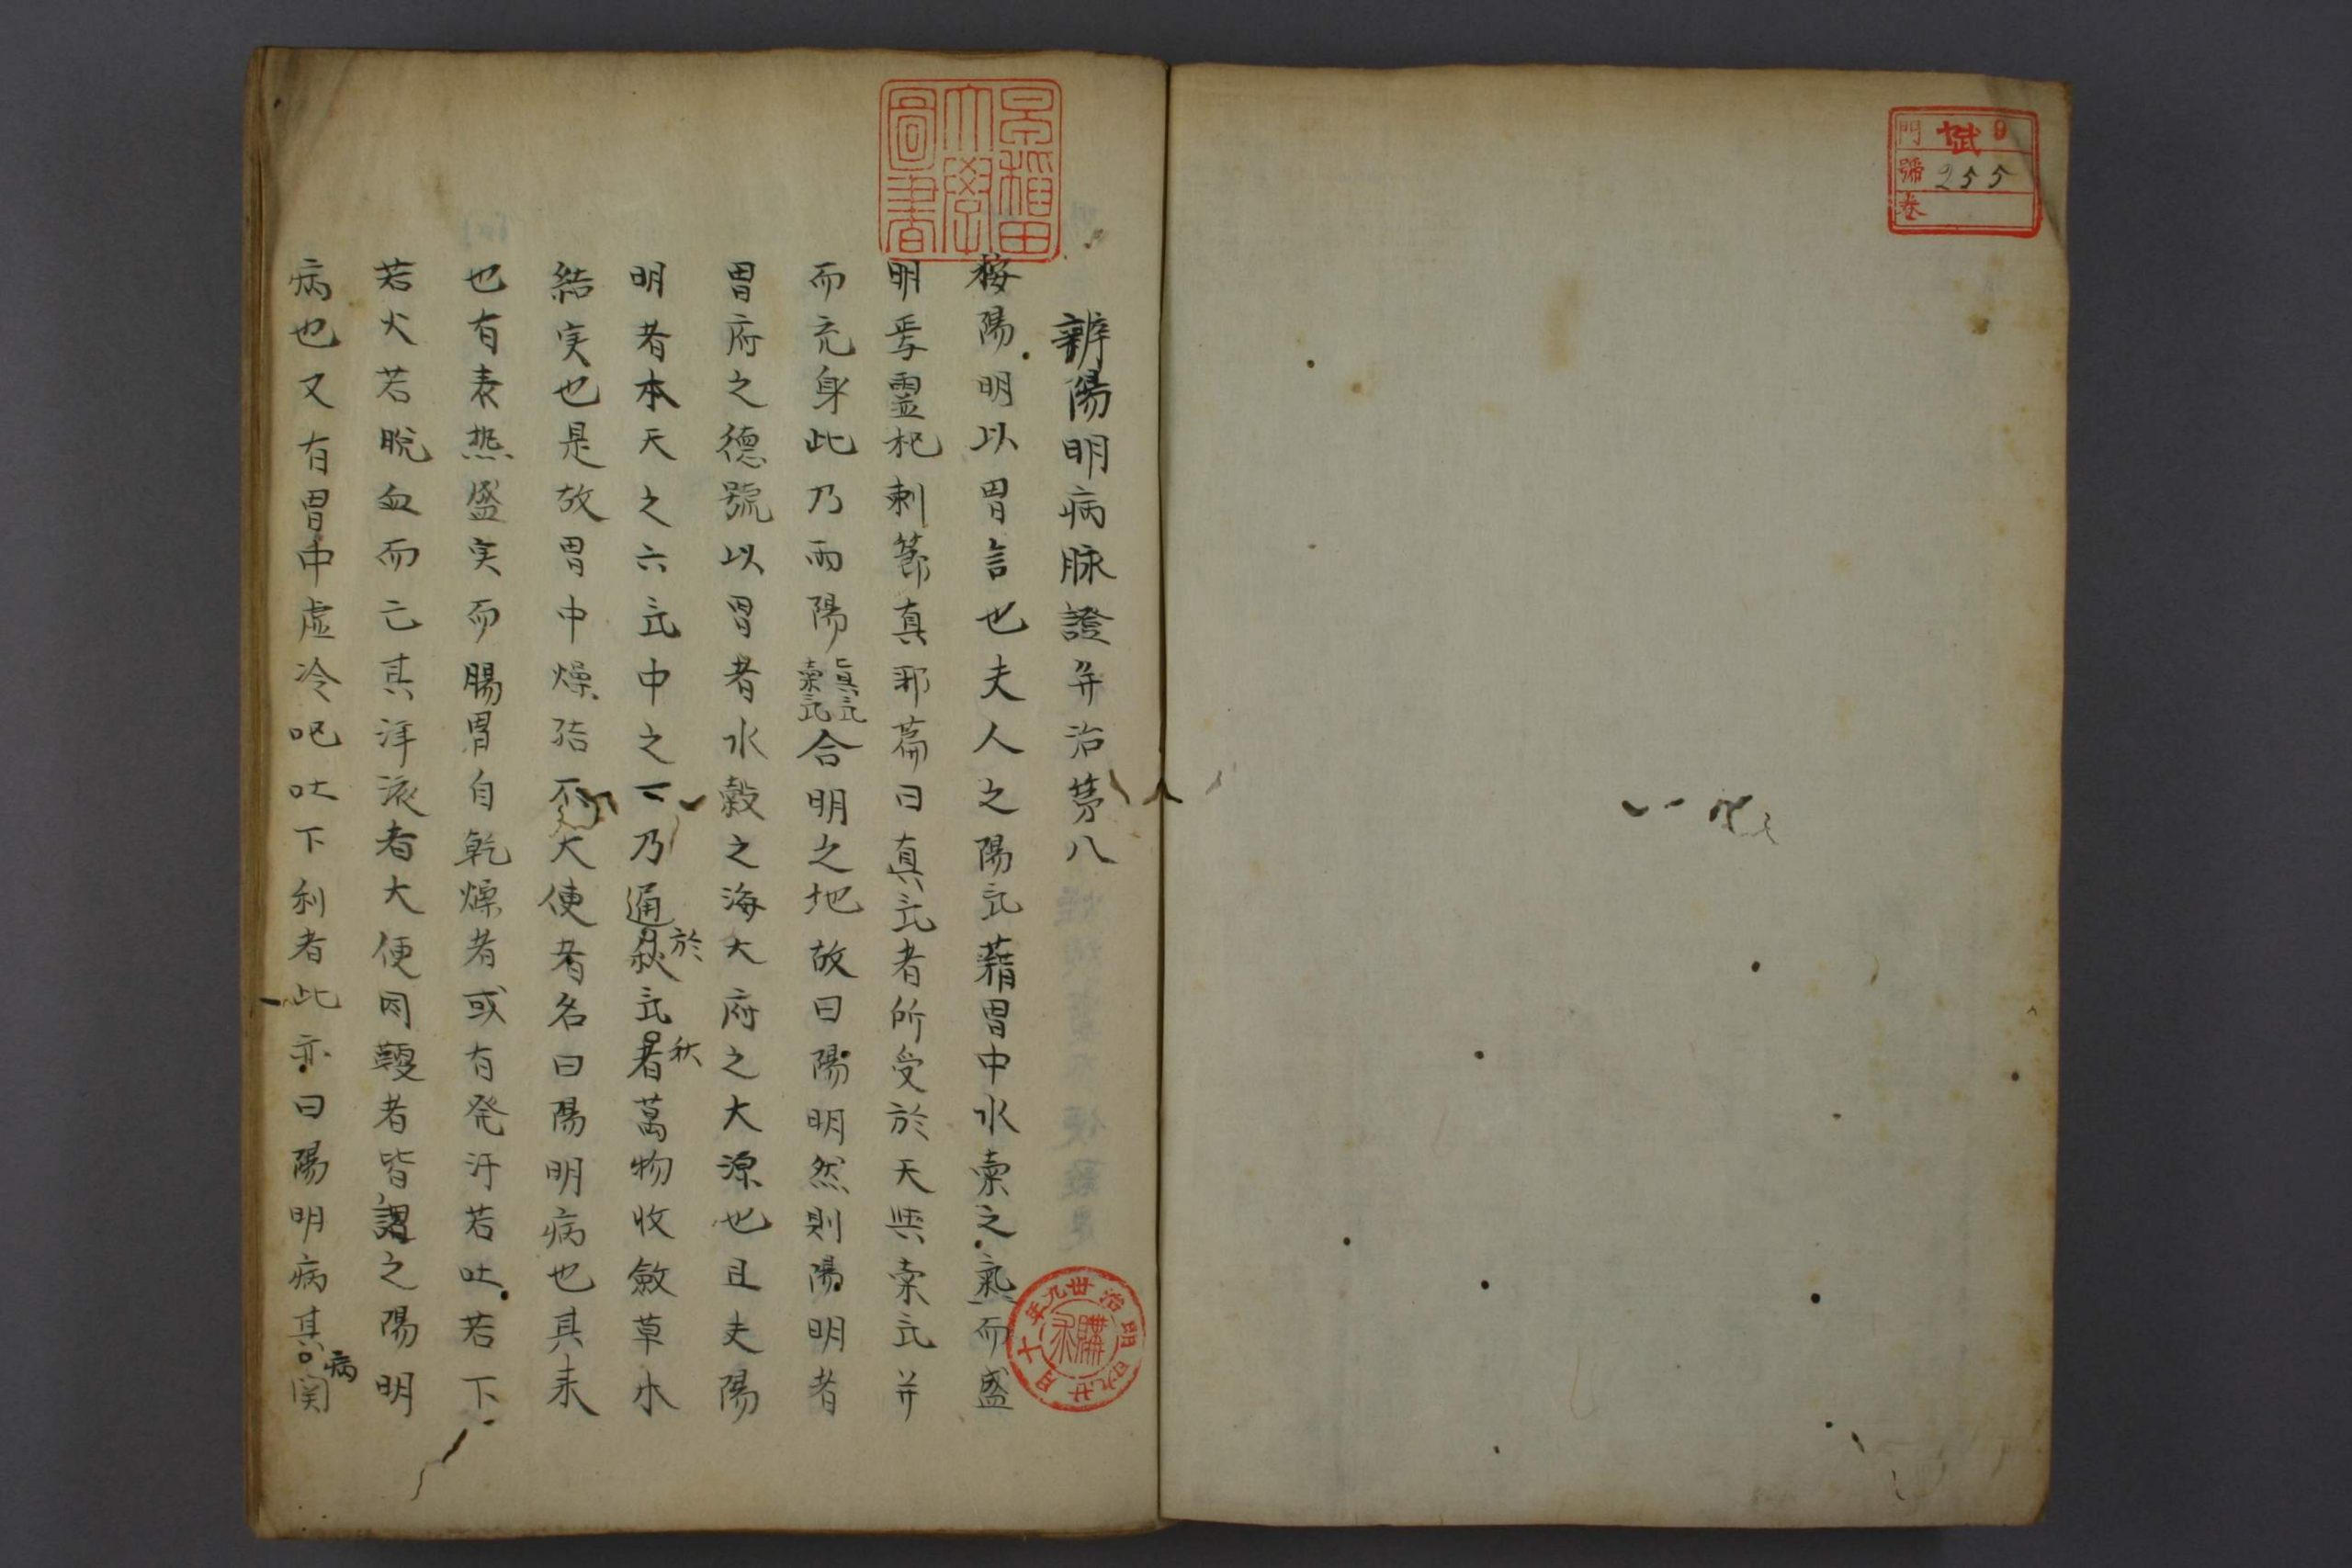 門 9
號 255
卷
早稲田
大學
圖書
辨陽明病脉證并治苐八
桉陽明以胃言也夫人之陽氣藉胃中水索之氣而盛
明焉霊枢刺節真邪篇曰真氣者所受於天與索氣并
而充身此乃両陽真氣索氣合明之地故曰陽明然則陽明者
胃府之德號以胃者水穀之海大府之大源也且夫陽
明者本天之六氣中之一乃通於秋氣秋者萬物收斂草木
結実也是故胃中燥結不大便者名曰陽明病也其来
也有表熱盛実而腸胃自乾燥者或有発汗若吐若下
若火若脱血而亡其津液者大便因鞕者皆謂之陽明
病也又有胃中虚冷呕吐下利者此亦曰陽明病其病関
明治卅九年十月廿九日
購求